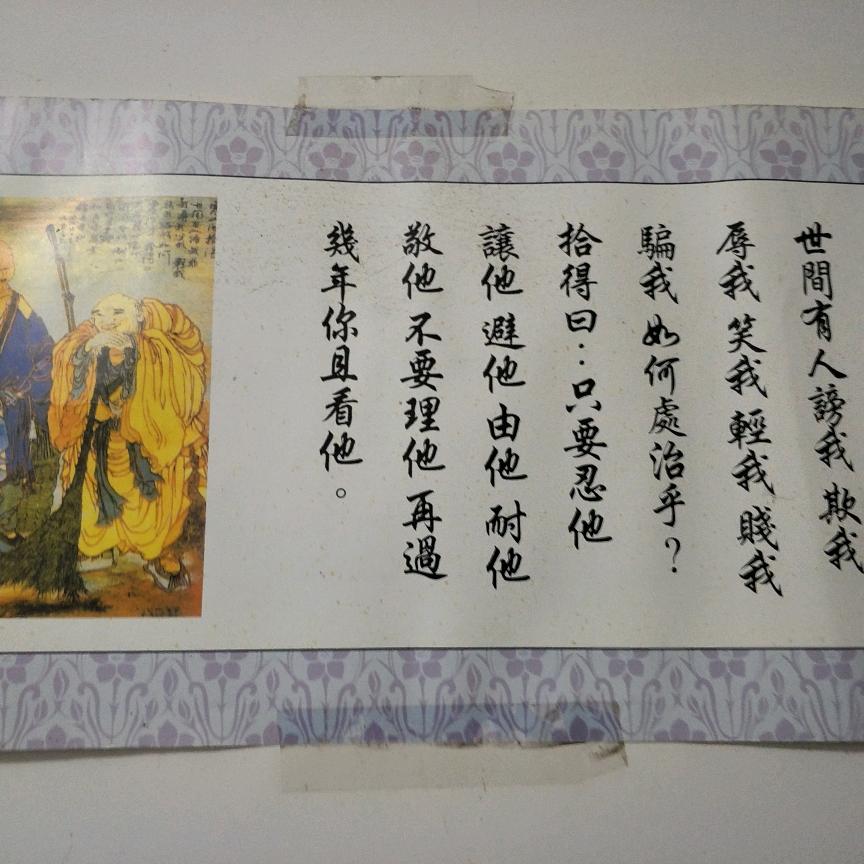 世間有人謗我 欺我
辱我 笑我 輕我 賤我
騙我 如何處治乎？
拾得曰：只要忍他
讓他 避他 由他 耐他
敬他 不要理他 再過
幾年你且看他。